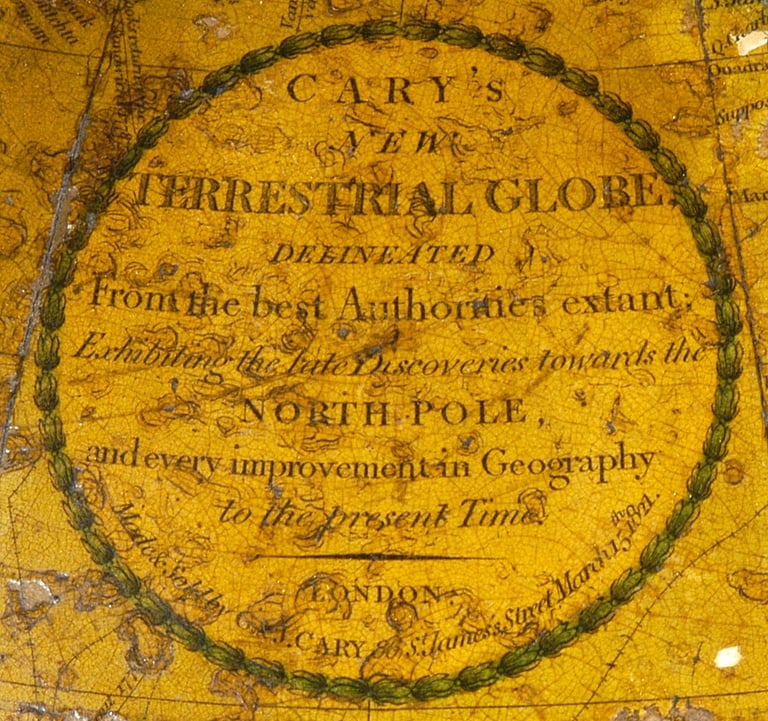 CARY's
NEW
TERRESTRIAL GLOBE,
DELINEATED
From the best Authorities extant;
Exhibiting the late Discoveries towards the
NORTH POLE,
and every improvement in Geography
to the present Time.
LONDON
Made & Sold by G. & J. CARY, 86 St. James's Street March 15th 1821.
Quadra
Suppos